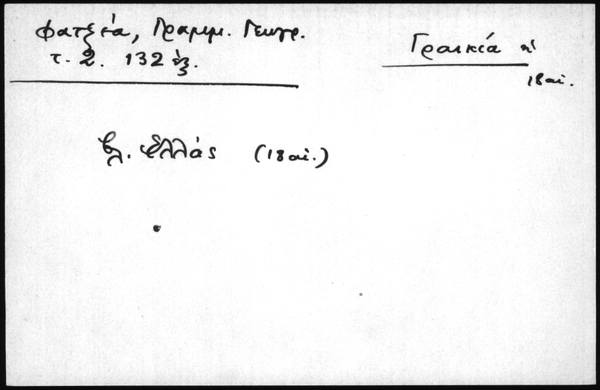 Φατζέα, Γραμμ. Γεωγρ.
τ. 2. 132 ἑξ.
Γραικία ἡ
18 αἰ.
βλ. Ἑλλάς (18 αἰ.)